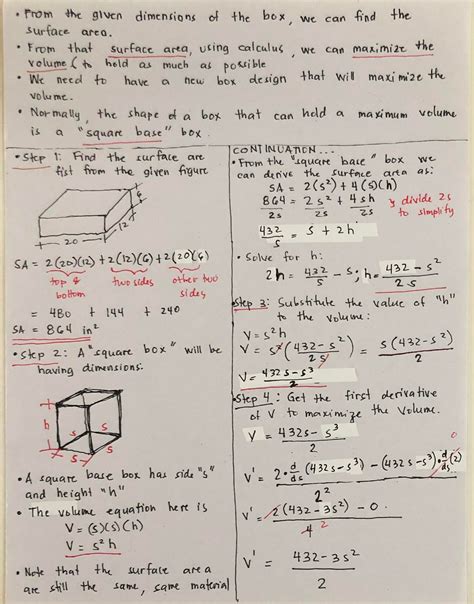 • From the given dimensions of the box, we can find the
surface area.
• From that surface area, using calculus, we can maximize the
volume ( to hold as much as possible
• We need to have a new box design that will maximize the
volume.
• Normally, the shape of a box that can hold a maximum volume
is a "square base" box.
• Step 1: Find the surface are
fist from the given figure
6
12
20
SA = 2(20)(12) + 2(12)(6) + 2(20)(6)
top & bottom two sides other two sides
= 480 + 144 + 240
SA = 864 in²
• Step 2: A "square box" will be
having dimensions:
h
s
s
s
• A square base box has side "s"
and height "h"
• The volume equation here is
V = (s)(s)(h)
V = s²h
• Note that the surface area
are still the same, same material
CONTINUATION...
• From the "square base" box we
can derive the surface area as:
SA = 2(s²) + 4(s)(h)
864/2s = 2s²/2s + 4sh/2s } divide 2s to simplify
432/s = s + 2h
• Solve for h:
2h = 432/s - s ; h = 432 - s² / 2s
Step 3: Substitute the value of "h"
to the volume:
V = s²h
V = s² (432 - s² / 2s) = s(432 - s²) / 2
V = 432s - s³ / 2
• Step 4: Get the first derivative
of V to maximize the volume.
V = 432s - s³ / 2
V' = 2 · d/ds (432s - s³) - (432s - s³) · d/ds (2) / 2²
0
V' = 2(432 - 3s²) - 0 / 4 2
V' = 432 - 3s² / 2